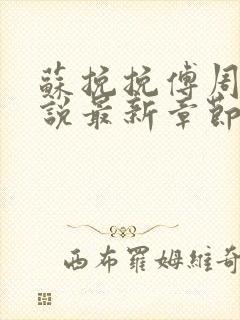 蘇梚梚傅周
說最新章節
西布羅姆維奇